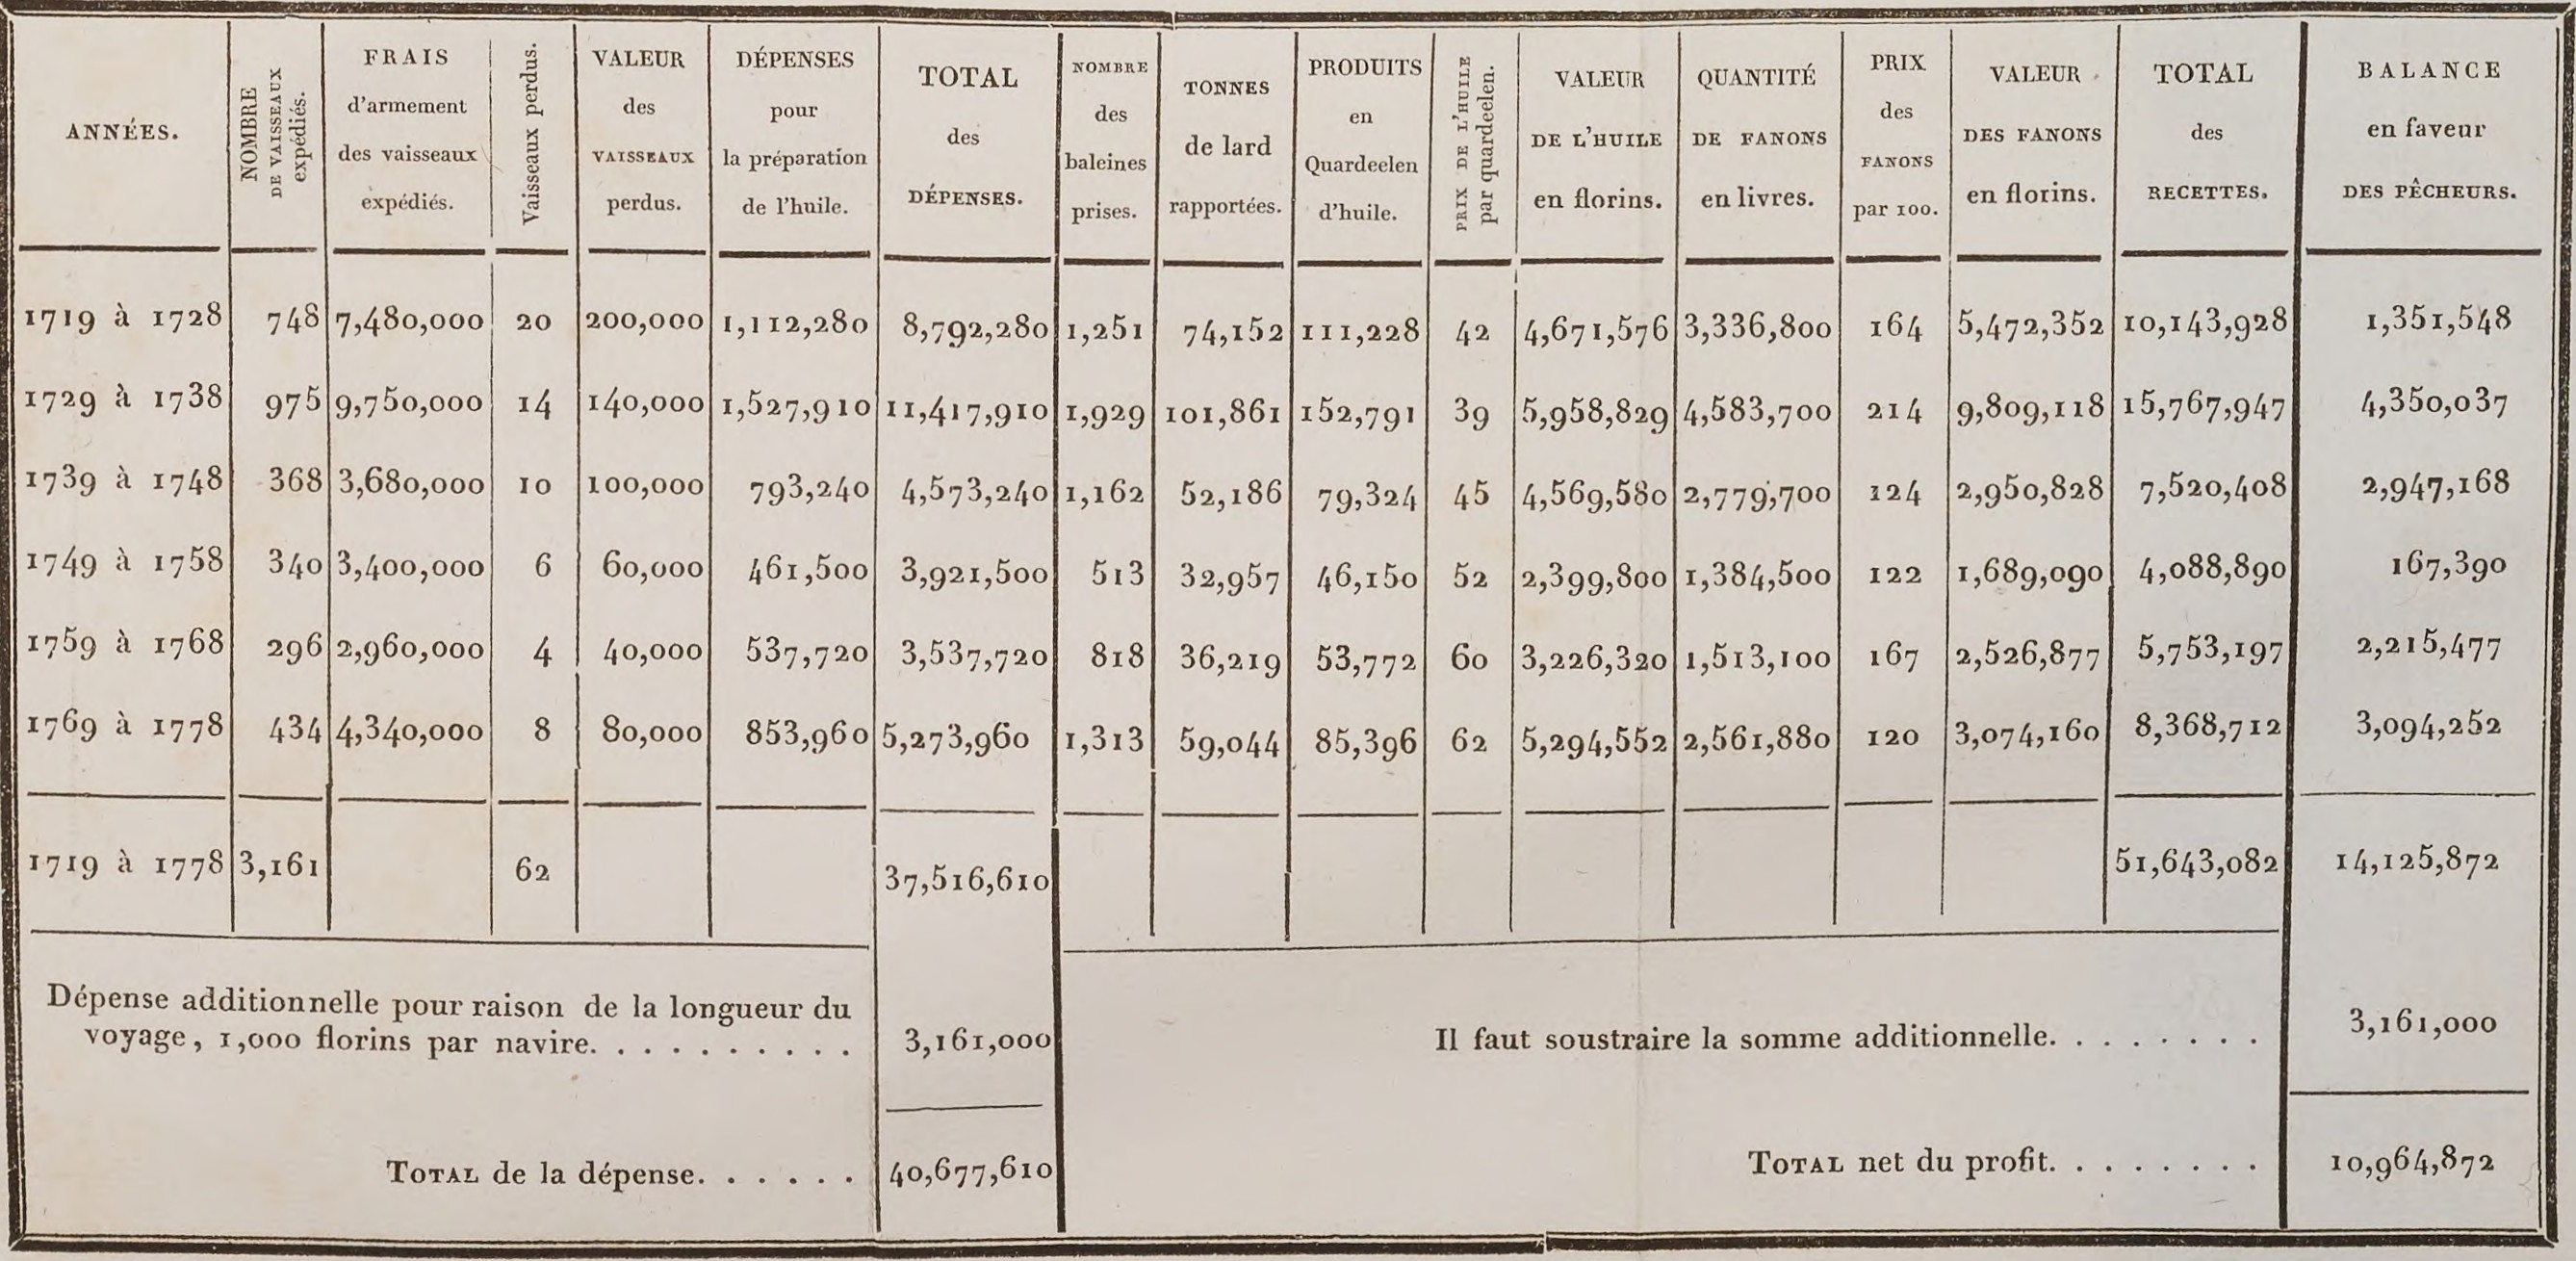 ANNÉES.
NOMBRE
DE VAISSEAUX
expédiés.
FRAIS
d'armement
des vaisseaux
expédiés.
Vaisseaux perdus.
VALEUR
des
VAISSEAUX
perdus.
DÉPENSES
pour
la préparation
de l'huile.
TOTAL
des
DÉPENSES.
NOMBRE
des
baleines
prises.
TONNES
de lard
rapportées.
PRODUITS
en
Quardeelen
d'huile.
PRIX DE L'HUILE
par quardeelen.
VALEUR
DE L'HUILE
en florins.
QUANTITÉ
DE FANONS
en livres.
PRIX
des
FANONS
par 100.
VALEUR
DES FANONS
en florins.
TOTAL
des
RECETTES.
BALANCE
en faveur
DES PÊCHEURS.
1719 à 1728 748 7,480,000 20 200,000 1,112,280 8,792,280 1,251 74,152 111,228 42 4,671,576 3,336,800 164 5,472,352 10,143,928 1,351,548
1729 à 1738 975 9,750,000 14 140,000 1,527,910 11,417,910 1,929 101,861 152,791 39 5,958,829 4,583,700 214 9,809,118 15,767,947 4,350,037
1739 à 1748 368 3,680,000 10 100,000 793,240 4,573,240 1,162 52,186 79,324 45 4,569,580 2,779,700 124 2,950,828 7,520,408 2,947,168
1749 à 1758 340 3,400,000 6 60,000 461,500 3,921,500 513 32,957 46,150 52 2,399,800 1,384,500 122 1,689,090 4,088,890 167,390
1759 à 1768 296 2,960,000 4 40,000 537,720 3,537,720 818 36,219 53,772 60 3,226,320 1,513,100 167 2,526,877 5,753,197 2,215,477
1769 à 1778 434 4,340,000 8 80,000 853,960 5,273,960 1,313 59,044 85,396 62 5,294,552 2,561,880 120 3,074,160 8,368,712 3,094,252
1719 à 1778 3,161 62 37,516,610 51,643,082 14,125,872
Dépense additionnelle pour raison de la longueur du
voyage, 1,000 florins par navire. . . . . . . . . . 3,161,000
Il faut soustraire la somme additionnelle. . . . . . . . 3,161,000
TOTAL de la dépense. . . . . . 40,677,610
TOTAL net du profit. . . . . . . . 10,964,872